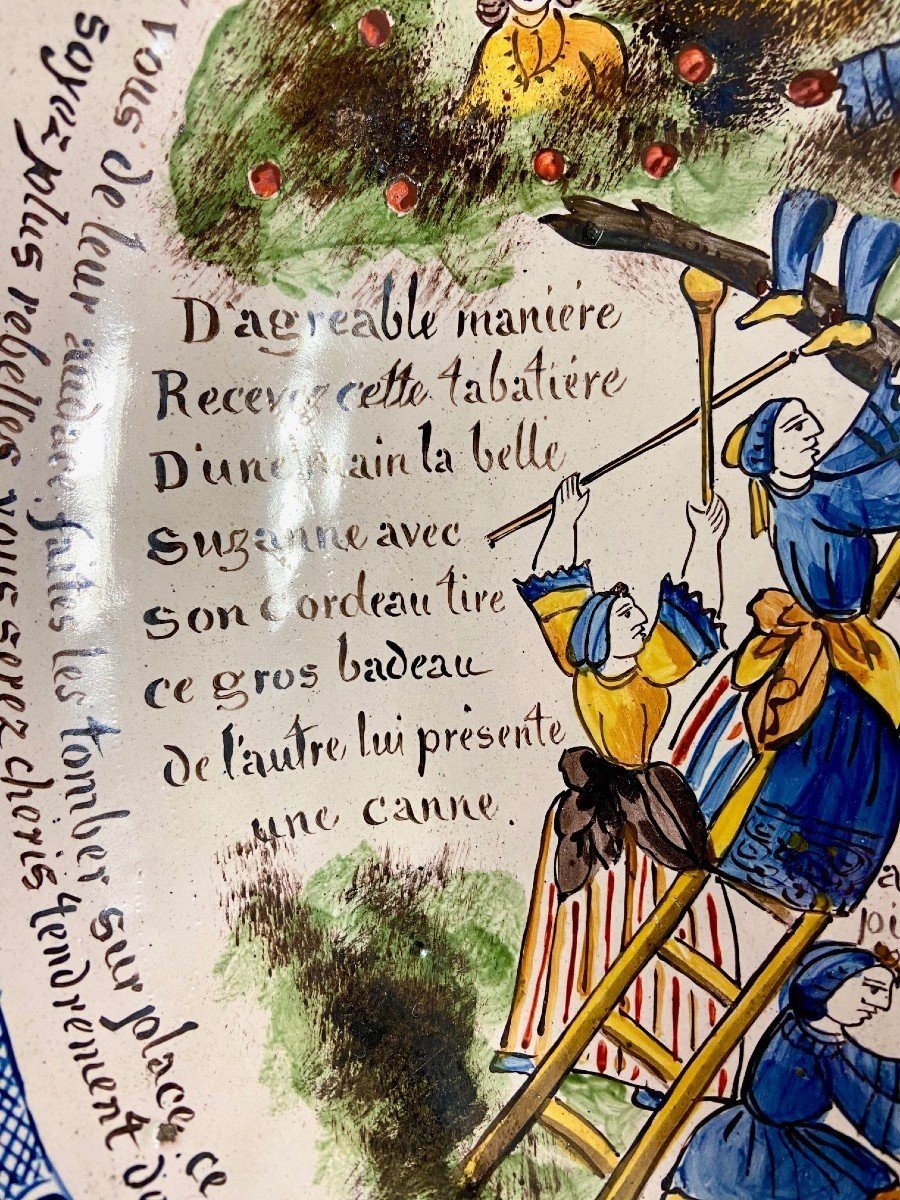 vous de leur audace, faites les tomber sur place, ce
soyez plus rebelles vous serez choris tendrement
D'agréable maniére
Recevez cette tabatiére
D'une main la belle
suzanne avec
son cordeau tire
ce gros badeau
de l'autre lui présente
une canne.
a
pi